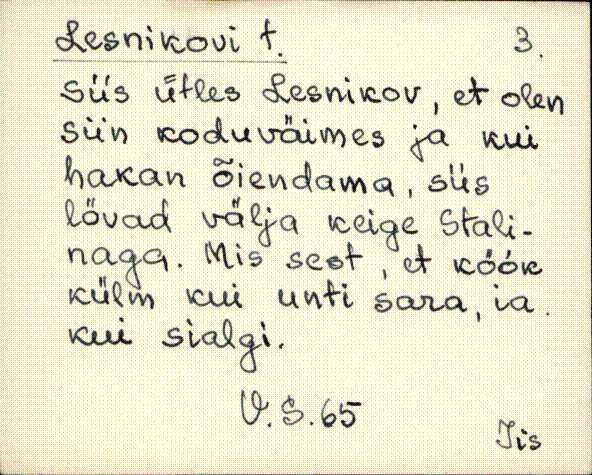 Lesnikovi t. 3.
Siis ütles Lesnikov, et olen
siin koduväimes ja kui
hakan õiendama, siis
lövad välja keige Stali-
naga. Mis sest, et köök
külm kui unti sara, ia
kui sialgi.
V.S. 65
Iis